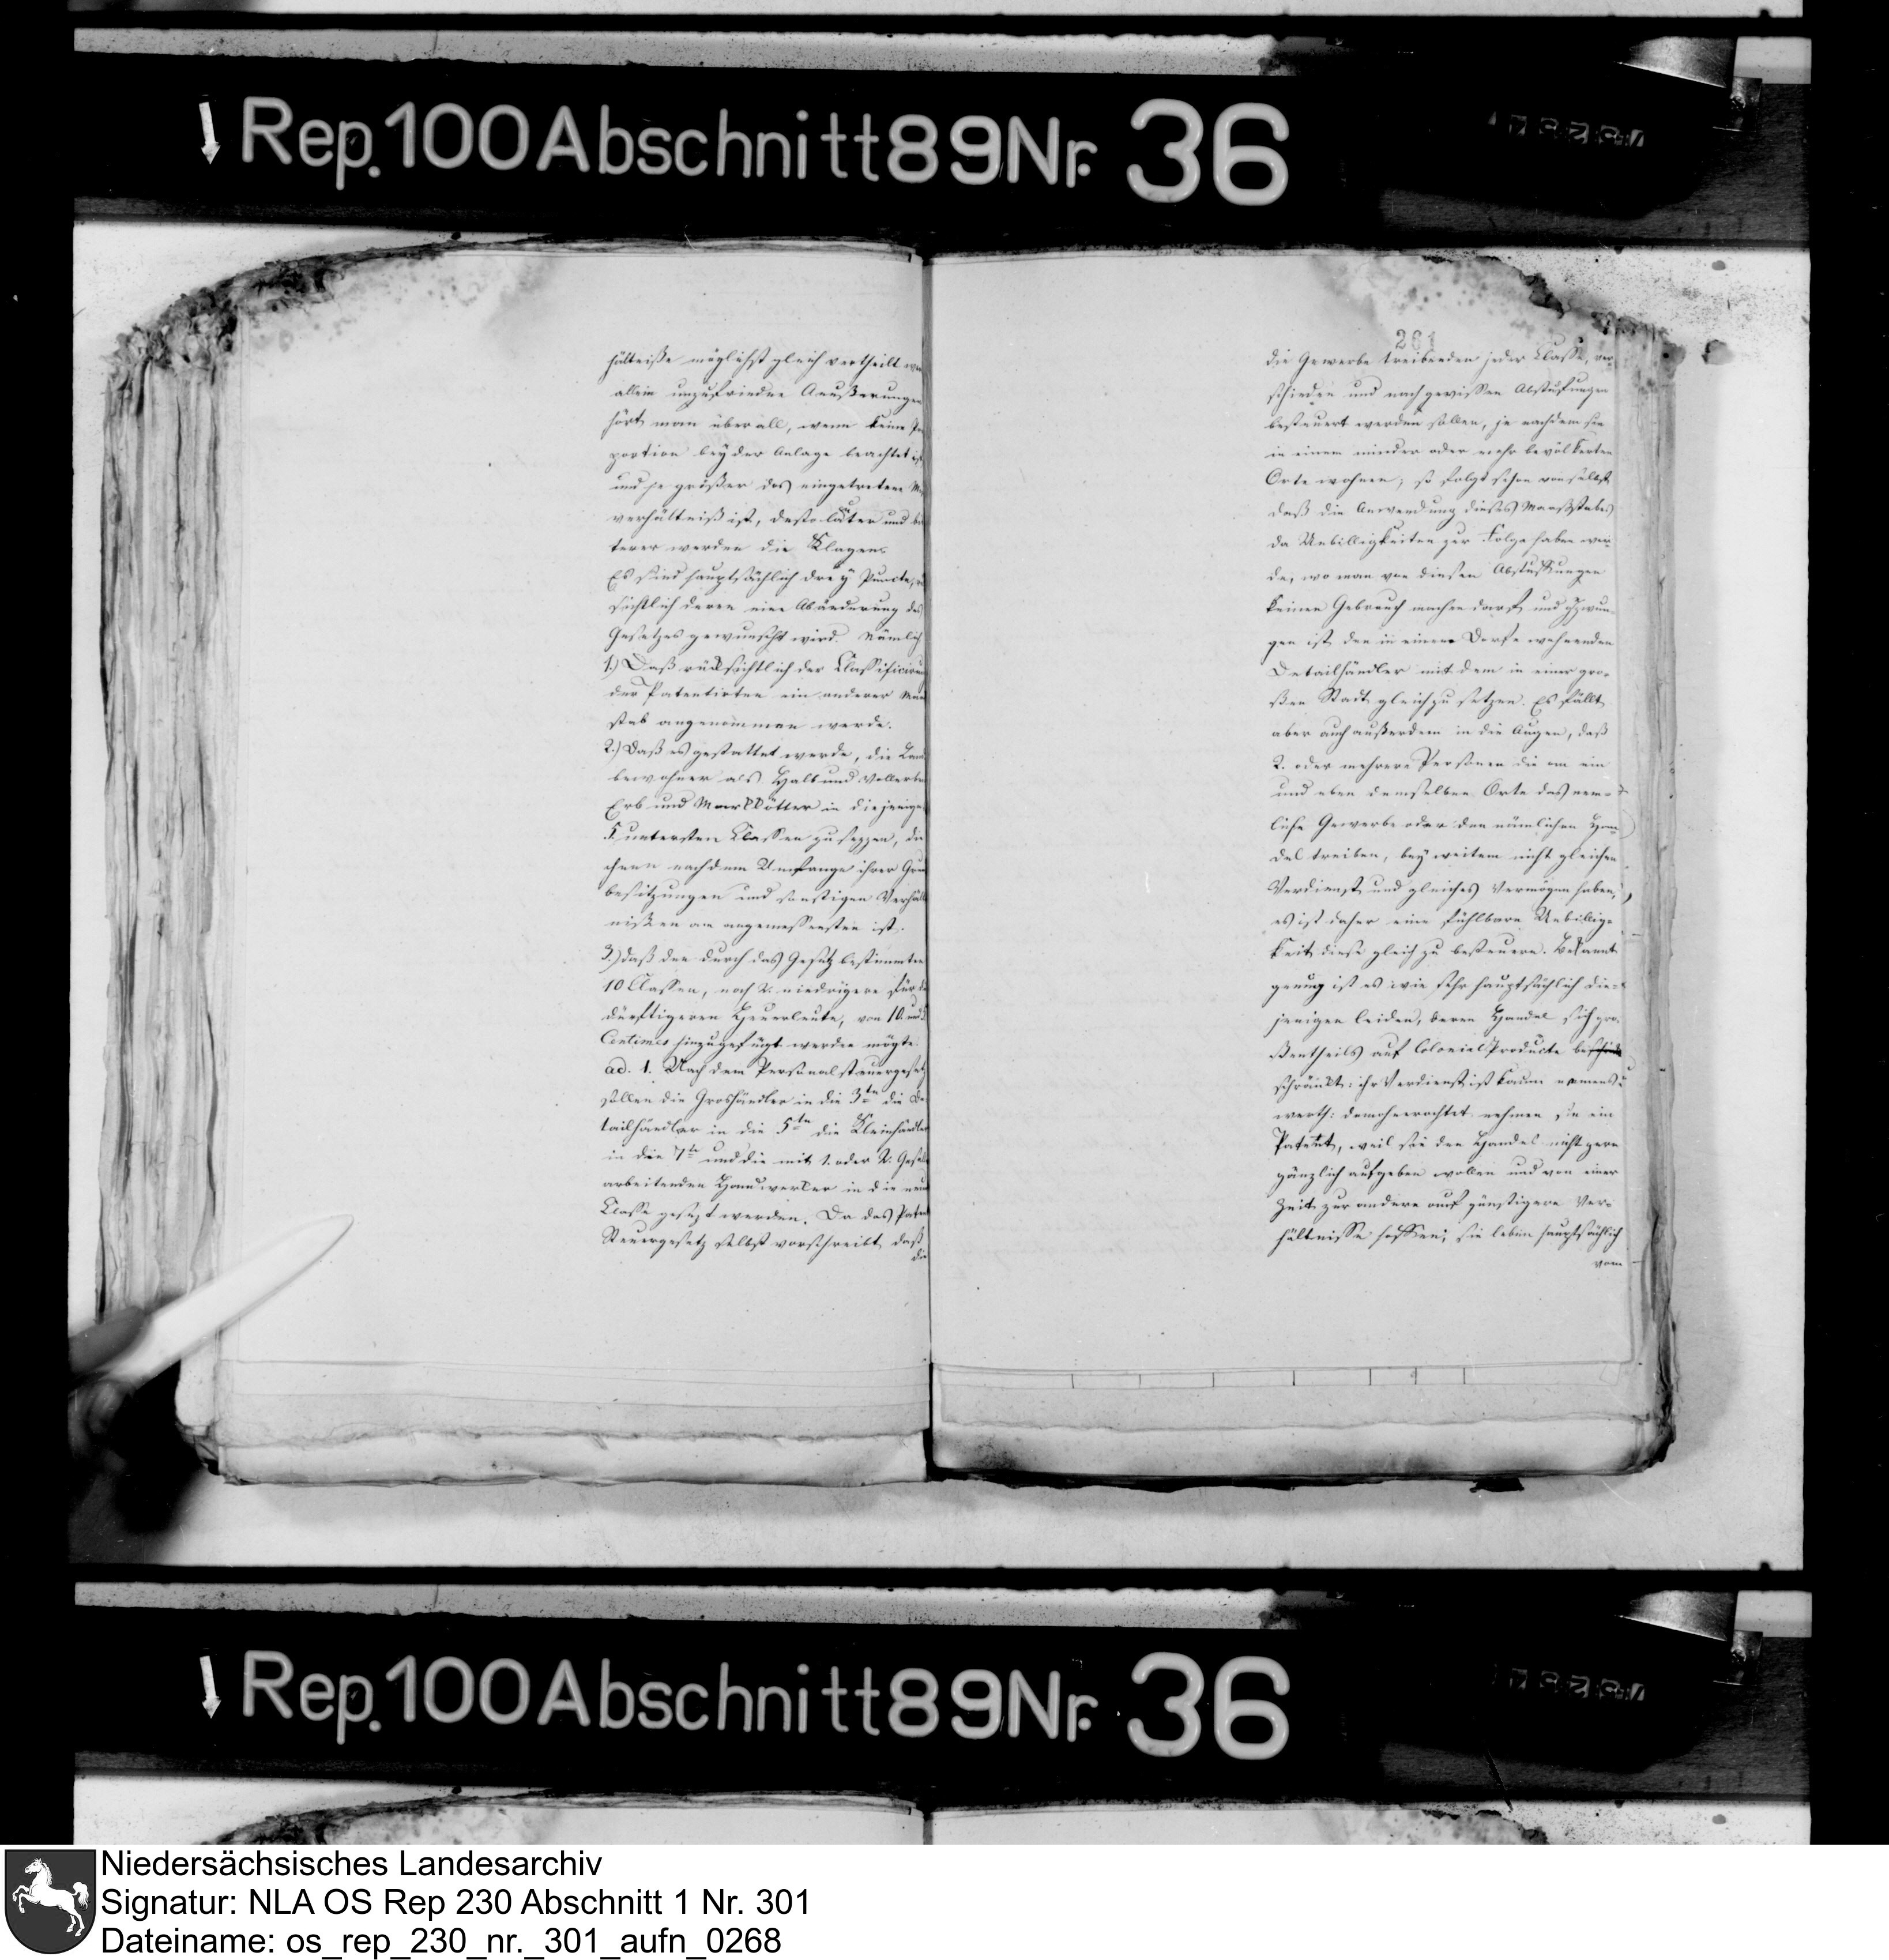 Rep. 100 Abschnitt 89 Nr. 36
hältniße möglichst gleich vertheilt
allein unzufriedne Aeußerungen
hört man überall, wenn keine Pro
portion bey der Anlage beachtet ist
und je größer das eingetretene
verhältniß ist, desto lauter und bit
terer werden die Klagen.
Es sind hauptsächlich drey Puncte,
sichtlich deren eine Abänderung des
Gesetzes gewünscht wird. Nämlich
1.) Daß rücksichtlich der Classificirung
der Patentirten ein anderer Maas
stab angenommen werde.
2.) Daß es gestattet werde, die Land
bewohner als Halb und Vollerben
Erb und Markkötter in diejenige
5 untersten Classen zu setzen, die
ihnen nach dem Umfange ihrer Grund
besitzungen und sonstigen Verhält
nißen am angemessensten ist.
3.) daß den durch das Gesetz bestimmten
10 Classen, noch 2. niedrigere für die
dürftigeren Heuerleute, von 10. und
Centimes hinzugefügt werden mögte.
ad. 1. Nach dem Personalsteuergesetz
sollen die Groshändler in die 3te die De
tailhändler in die 5te die Kleinhändler
in die 7te und die mit 1. oder 2. Gesellen
arbeitenden Handwerker in die neun
Classe gesezt werden. Da das Patent
Steuergesetz selbst vorschreibt, daß
die
261
die Gewerbe treibenden jeder Classe, ver-
schieden und nach gewissen Abstufungen
besteuert werden sollen, je nachdem sie
in einem minder oder mehr bevölkerten
Orte wohnen; so folgt schon von selbst,
daß die Anwendung dieses Maasstabes
da Unbilligkeiten zur Folge haben wer-
de, wo man von diesen Abstuffungen
keinen Gebrauch machen darf, und gezwun-
gen ist den in einem Dorfe wohnenden
Detailhändler mit dem in einer gro-
ßen Stadt gleich zu setzen. Es fällt
aber auch außerdem in die Augen, daß
2. oder mehrere Personen die an ein
und eben demselben Orte das nem-
liche Gewerbe oder den nämlichen Han-
del treiben, bey weitem nicht gleichen
Verdienst und gleiches Vermögen haben,
es ist daher eine fühlbare Unbillig-
keit diese gleich zu besteuern. Bekannt
genug ist es wie sehr hauptsächlich die-
jenigen leiden, deren Handel sich grö-
ßentheils auf Colonial Producte be
schränkt: ihr Verdienst ist kaum nennens-
werth: demohnerachtet nehmen sie ein
Patent, weil sie den Handel nicht gern
gänzlich aufgeben wollen und von einer
Zeit zur andern auf günstigere Ver-
hältnisse hoffen; sie leben hauptsächlich
vom
Rep. 100 Abschnitt 89 Nr. 36
Niedersächsisches Landesarchiv
Signatur: NLA OS Rep 230 Abschnitt 1 Nr. 301
Dateiname: os_rep_230_nr._301_aufn_0268